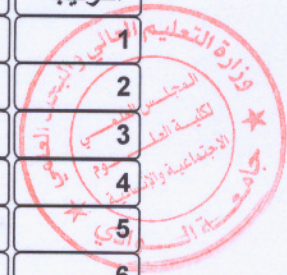 1
2
3
4
5
6
وزارة التعليم العالي والبحث العلمي
المجلس العلمي
لكلية العلـــوم
الاجتماعية والإنسانية
جامعـــة الـــوادي